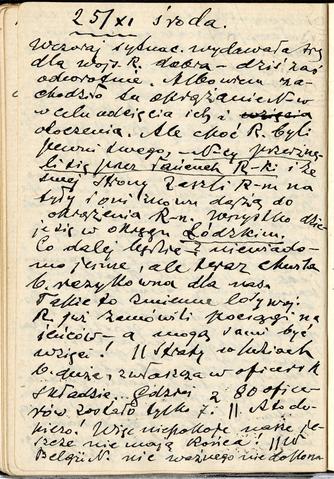 25/XI środa.
Wczoraj sytuac. wydawała się
dla wojs. R. dobra – dziś zaś
odwrotnie. Albowiem za-
chodziło tu okrążanie N-w
w celu odcięcia ich i wzięcia
otoczenia. Ale choć R. byli
pewni swego, – N-cy przerzną-
li się przez łańcuch R-ki i ze
swej strony zaszli R-m na
tyły i oni znowu dążą do
okrążenia R-n. Wszystko dzie-
je się w okręgu Łódzkim.
Co dalej będzie – niewiado-
mo jeszcze, ale teraz chwila
b. ryzykowna dla nas.
Takie to zmienne losy woj.
R. już zamówili pociągi na
jeńców – a mogą sami być
wzięci! || Straty w ludziach
b. duże, zwłaszcza w oficersk.
składzie. Gdzieś z 80 ofice-
rów zostało tylko 7. || A to do-
piero! Więc niepokoje nasze je-
szcze nie mają końca! || W
Belgii N. nic ważnego nie dokona